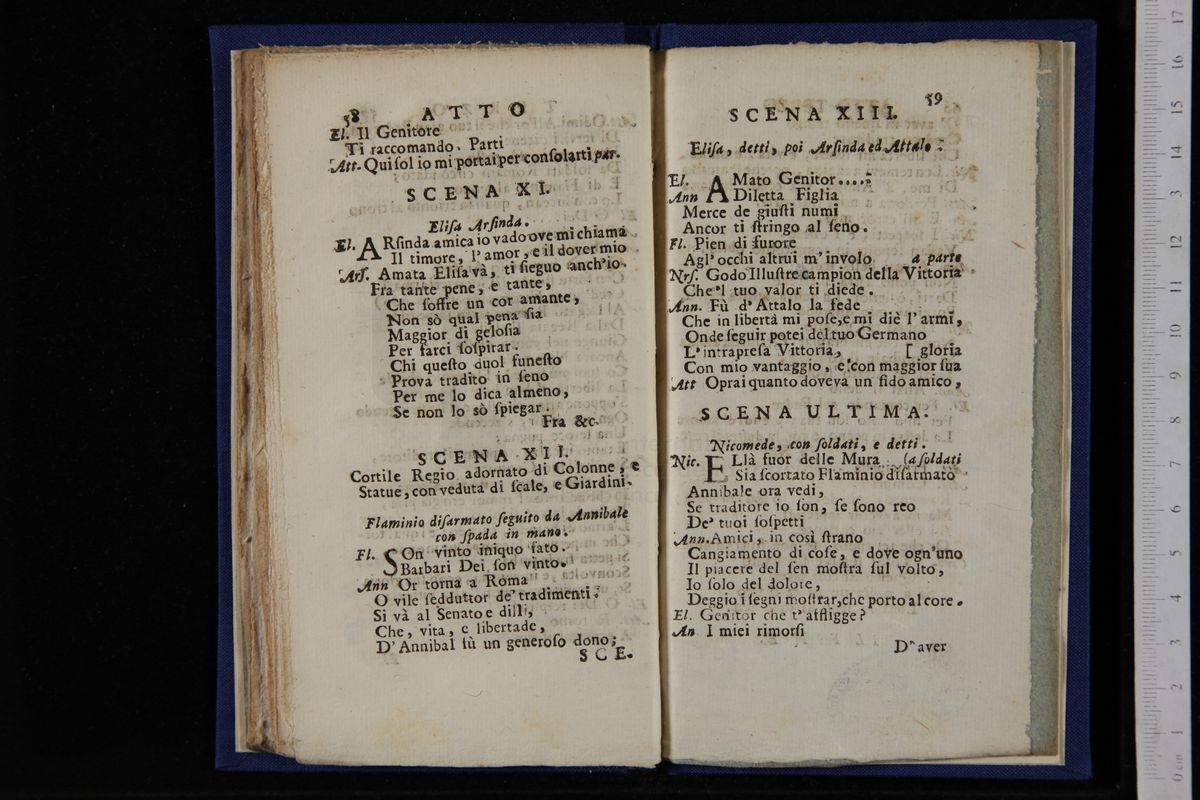 58 ATTO
El. Il Genitore
Ti raccomando. Parti
Att. Qui ſol io mi portai per conſolarti par.
SCENA XI.
Eliſa Arſinda.
El. ARſinda amica io vado ove mi chiama
Il timore, l'amor, e il dover mio
Arſ. Amata Eliſa và, ti ſieguo anch'io.
Fra tante pene, e tante,
Che ſoffre un cor amante,
Non sò qual pena ſia
Maggior di geloſia
Per farci ſoſpirar.
Chi queſto duol funeſto
Prova tradito in ſeno
Per me lo dica almeno,
Se non lo sò ſpiegar.
Fra &c.
SCENA XII.
Cortile Regio adornato di Colonne, e
Statue, con veduta di ſcale, e Giardini.
Flaminio diſarmato ſeguito da Annibale
con ſpada in mano.
Fl. SOn vinto iniquo fato.
Barbari Dei ſon vinto.
Ann Or torna a Roma
O vile ſedduttor de' tradimenti.
Si và al Senato e dilli,
Che, vita, e libertade,
D'Annibal fù un generoſo dono;
SCE.
59
SCENA XIII.
Eliſa, detti, poi Arſinda ed Attalo.
El. AMato Genitor....
Ann Diletta Figlia
Merce de giuſti numi
Ancor ti ſtringo al ſeno.
Fl. Pien di furore
Agl' occhi altrui m'involo a parte
Nrſ. Godo Illuſtre campion della Vittoria
Che'l tuo valor ti diede.
Ann. Fù d'Attalo la fede
Che in libertà mi poſe, e mi diè l'armi,
Onde ſeguir potei del tuo Germano
L'intrapreſa Vittoria, [ gloria
Con mio vantaggio, e con maggior ſua
Att Oprai quanto doveva un fido amico,
SCENA ULTIMA.
Nicomede, con ſoldati, e detti.
Nic. ELlà fuor delle Mura (a ſoldati
Sia ſcortato Flaminio diſarmato
Annibale ora vedi,
Se traditore io ſon, ſe ſono reo
De' tuoi ſoſpetti
Ann. Amici, in così ſtrano
Cangiamento di coſe, e dove ogn'uno
Il piacere del ſen moſtra ſul volto,
Io ſolo del dolore,
Deggio i ſegni moſtrar, che porto al core.
El. Genitor che t'affligge?
An I miei rimorſi
D'aver